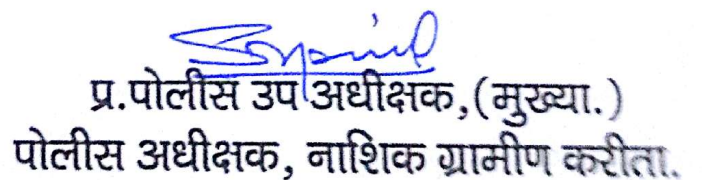 प्र.पोलीस उप अधीक्षक,(मुख्या.)
पोलीस अधीक्षक, नाशिक ग्रामीण करीता.